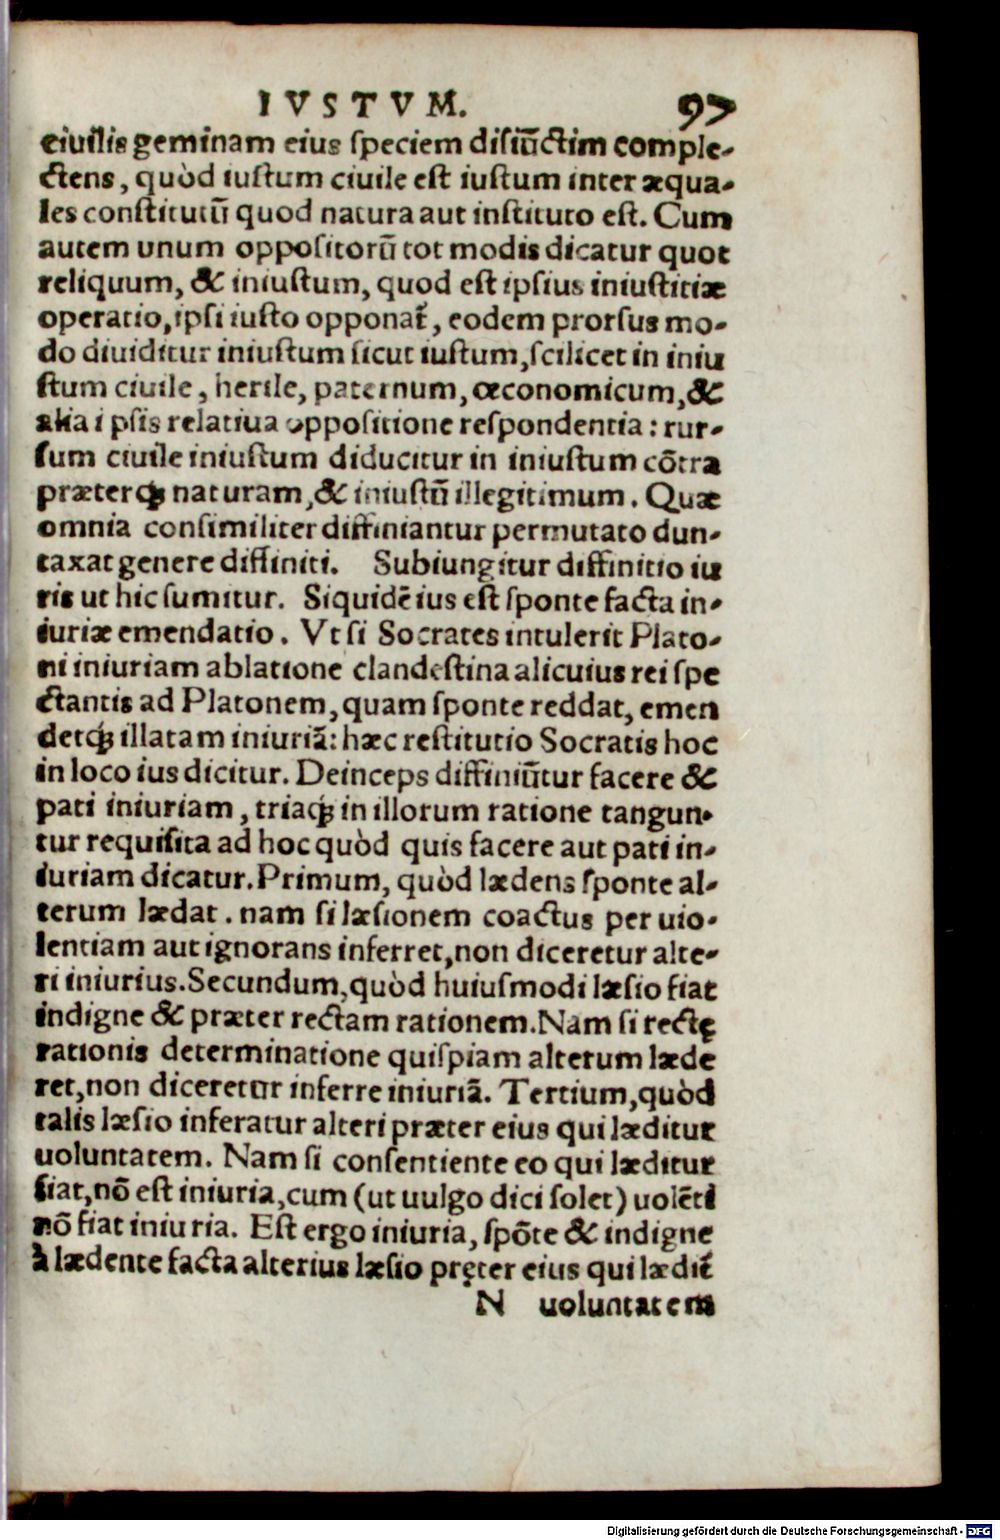 IVSTVM. 97
ciuilis geminam eius ſpeciem diſiũctim comple-
ctens, quòd iuſtum ciuile eſt iuſtum inter æqua-
les conſtitutũ quod natura aut inſtituto eſt. Cum
autem unum oppoſitorũ tot modis dicatur quot
reliquum, & iniuſtum, quod eſt ipſius iniuſtitiæ
operatio, ipſi iuſto opponat᷑, eodem prorſus mo-
do diuiditur iniuſtum ſicut iuſtum, ſcilicet in iniu
ſtum ciuile, herile, paternum, œconomicum, &
alia ipſis relatiua oppoſitione reſpondentia: rur-
ſum ciuile iniuſtum diducitur in iniuſtum cõtra
præterq́ꝫ naturam, & iniuſtũ illegitimum. Quæ
omnia conſimiliter diffiniantur permutato dun-
taxat genere diffiniti. Subiungitur diffinitio iu
ris ut hic ſumitur. Siquidẽ ius eſt ſponte facta in-
iuriæ emendatio. Vt ſi Socrates intulerit Plato-
ni iniuriam ablatione clandeſtina alicuius rei ſpe
ctantis ad Platonem, quam ſponte reddat, emen
detq́ꝫ illatam iniuriã: hæc reſtitutio Socratis hoc
in loco ius dicitur. Deinceps diffiniũtur facere &
pati iniuriam, triaq́ꝫ in illorum ratione tangun-
tur requiſita ad hoc quòd quis facere aut pati in-
iuriam dicatur. Primum, quòd lædens ſponte al-
terum lædat. nam ſi læſionem coactus per uio-
lentiam aut ignorans inferret, non diceretur alte-
ri iniurius. Secundum, quòd huiuſmodi læſio fiat
indigne & præter rectam rationem. Nam ſi rectę
rationis determinatione quiſpiam alterum læde
ret, non diceretur inferre iniuriã. Tertium, quòd
talis læſio inferatur alteri præter eius qui læditur
uoluntatem. Nam ſi conſentiente eo qui læditur
fiat, nõ eſt iniuria, cum (ut uulgo dici ſolet) uolẽti
nõ fiat iniuria. Eſt ergo iniuria, ſpõte & indigne
à lædente facta alterius læſio pręter eius qui lædit᷑
N uoluntatem
Digitalisierung gefördert durch die Deutsche Forschungsgemeinschaft - DFG